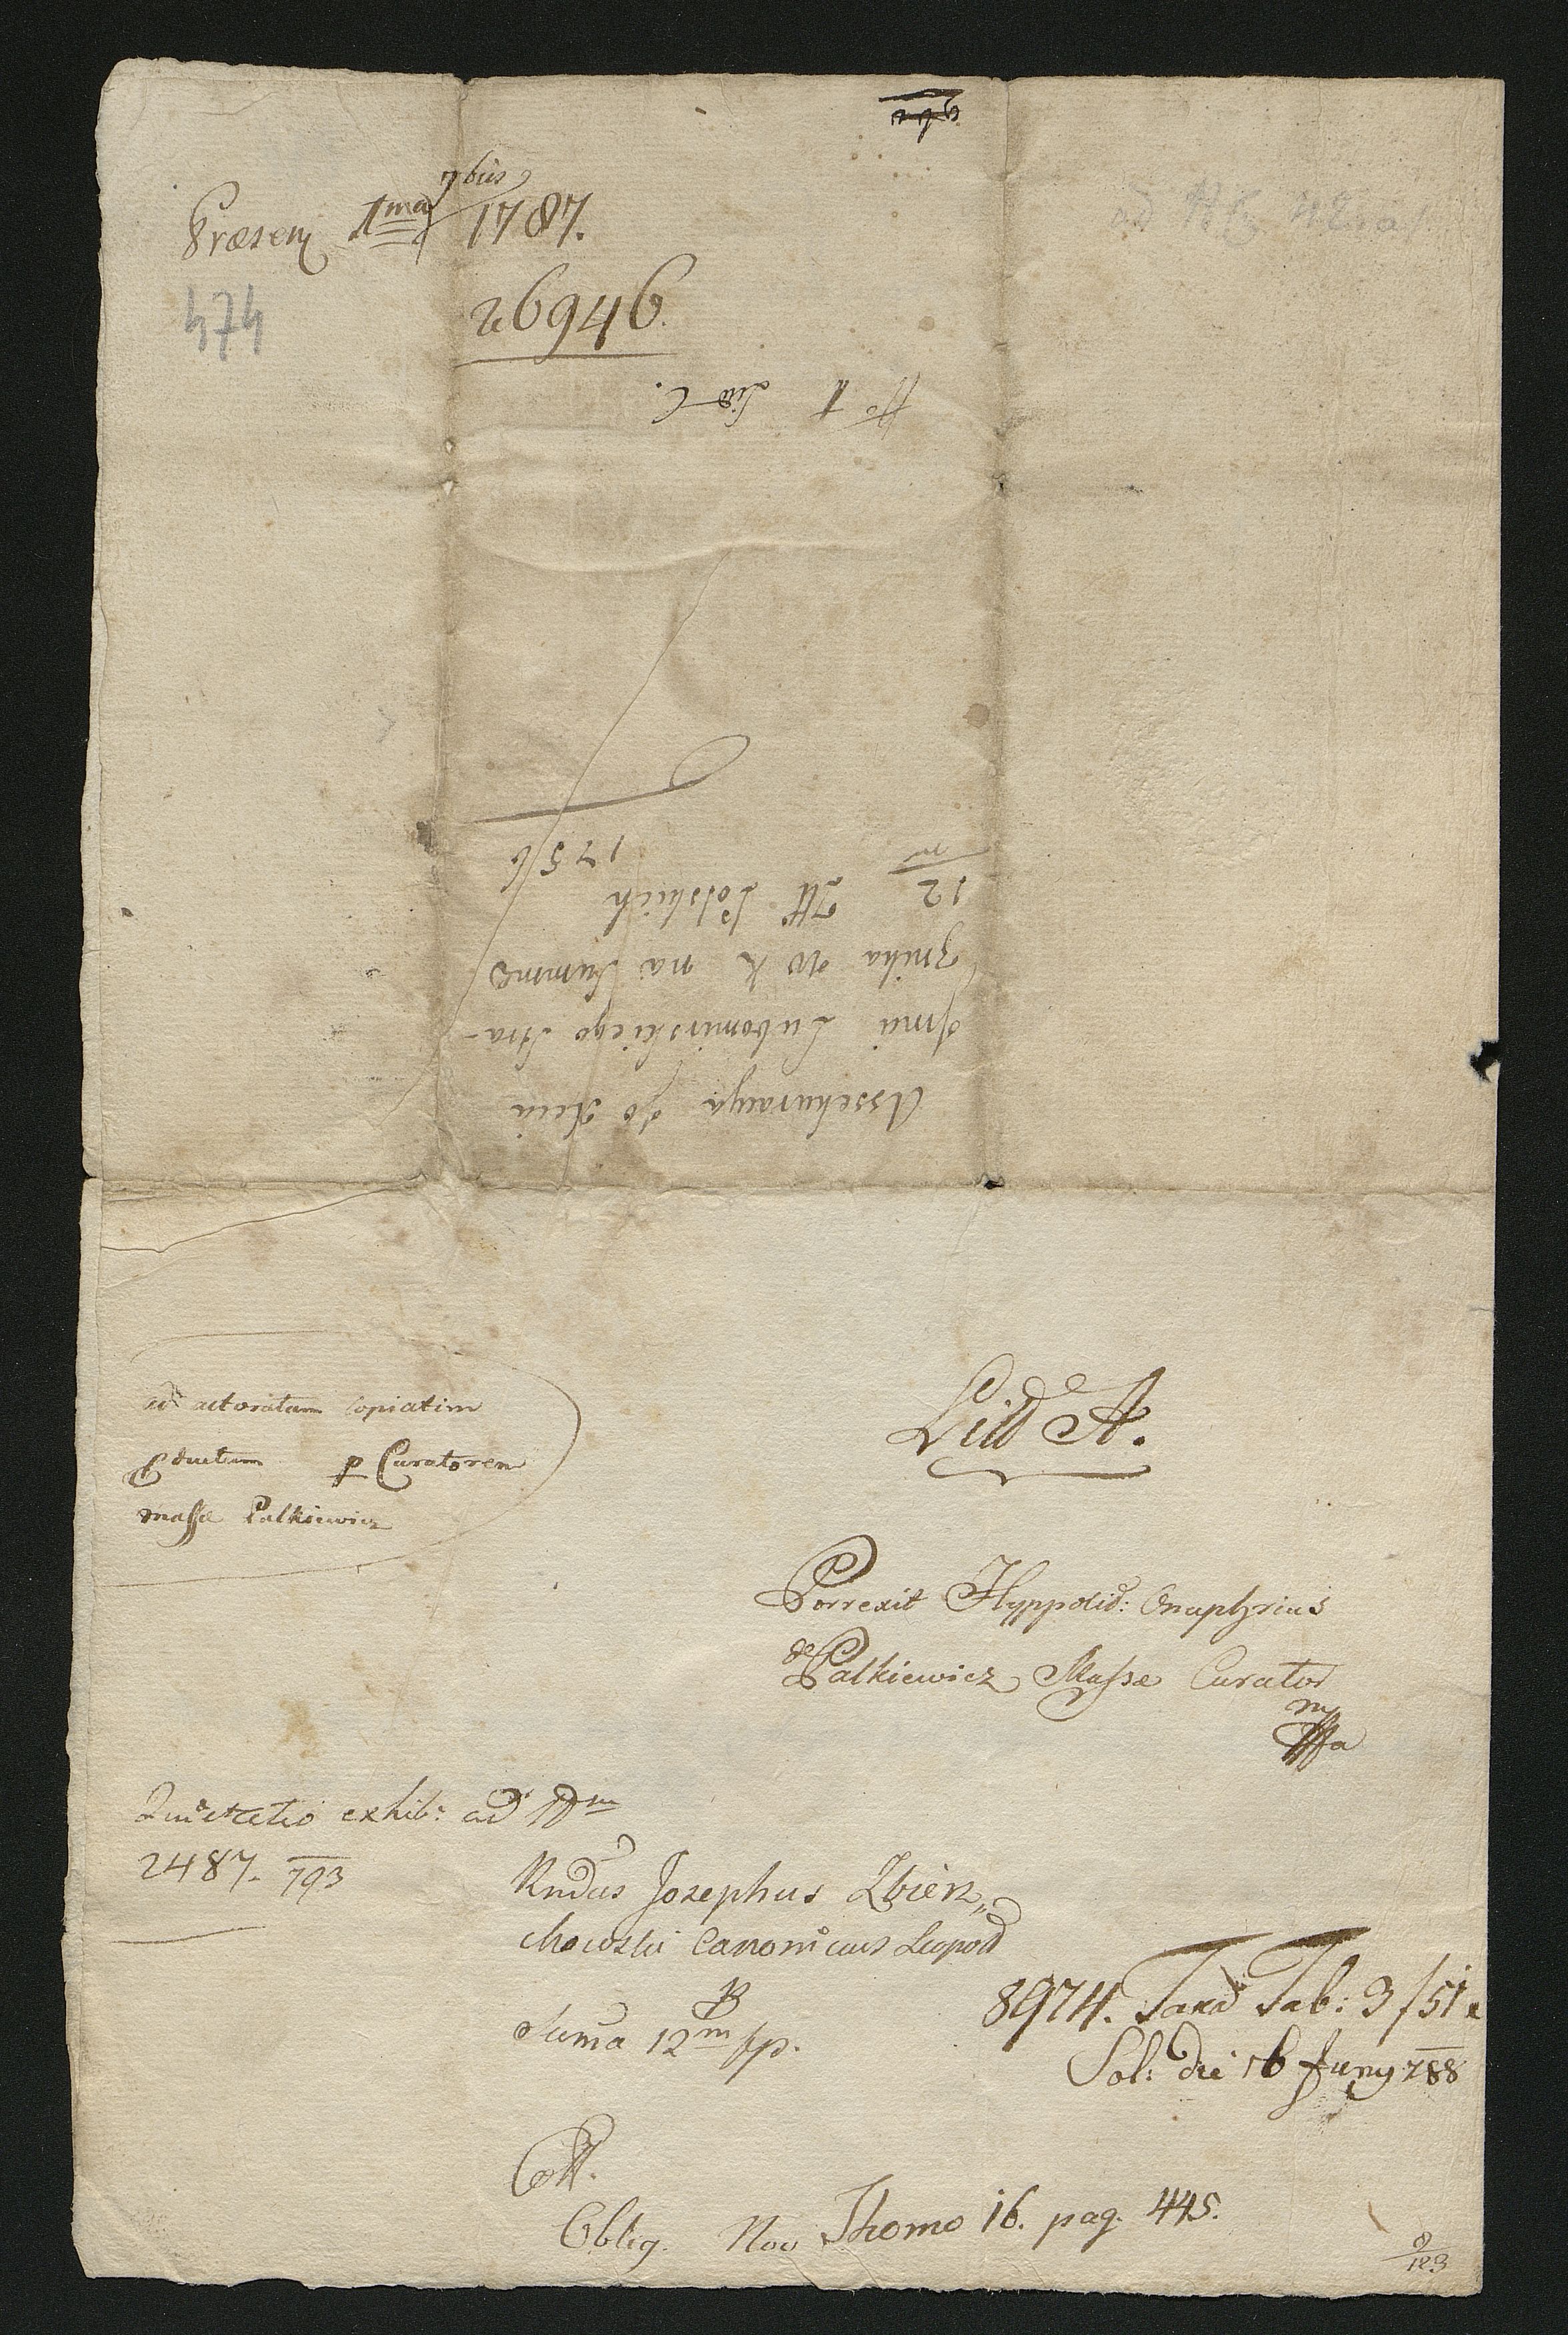 Præsent 1ma 7bris 1787.
474
26946.
No 1 Litt C.
Assekuracya Jo Xcia
Jmci Lubomirskiego Stra-
znika W K na Summe
12/m Zll Polskich
1756
ad actoratum copiatim
ductum per Curatorem
massæ Palkiewicz
Litt A.
Porrexit Hyppolit: Onuphrius
de Palkiewicz Massæ Curator
mppa
exhib: ad Num
2487. 793
Rndus Josephus Zbierz„
chowski Canonicus Leopol
Suma 12m fp.
8974. Taxa Tab: 3 f 51 x
Sol: die 16 Juny 788
Oblig. Nov Thomo 16. pag. 445.
9/123